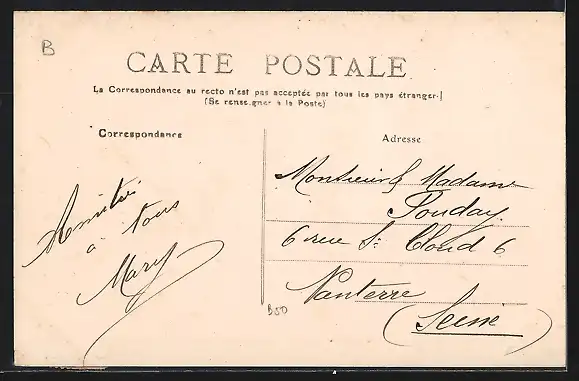 B
CARTE POSTALE
La Correspondance au recto n'est pas acceptée par tous les pays étranger.]
(Se renseigner à la Poste)
Correspondance
Amitiés
a tous
Mary
Adresse
Monsieur & Madame
Pouday
6 rue St Cloud 6
Nanterre
(Seine)
B50